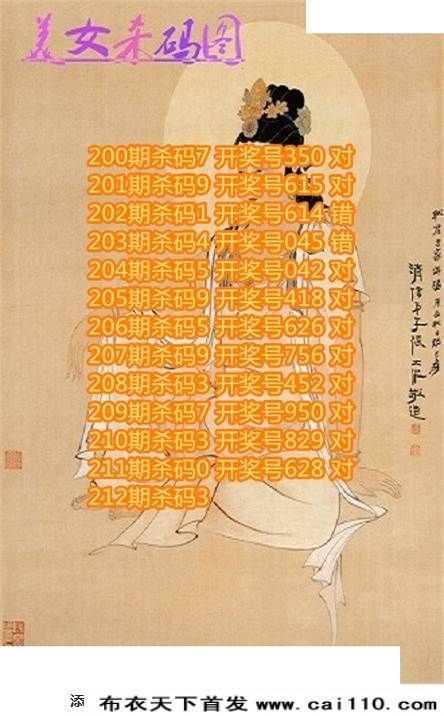 美女杀码图
200期杀码7 开奖号350 对
201期杀码9 开奖号615 对
202期杀码1 开奖号614 错
203期杀码4 开奖号045 错
204期杀码5 开奖号042 对
205期杀码9 开奖号418 对
206期杀码5 开奖号626 对
207期杀码9 开奖号756 对
208期杀码3 开奖号452 对
209期杀码7 开奖号950 对
210期杀码3 开奖号829 对
211期杀码0 开奖号628 对
212期杀码3
添 布衣天下首发 www.cai110.com